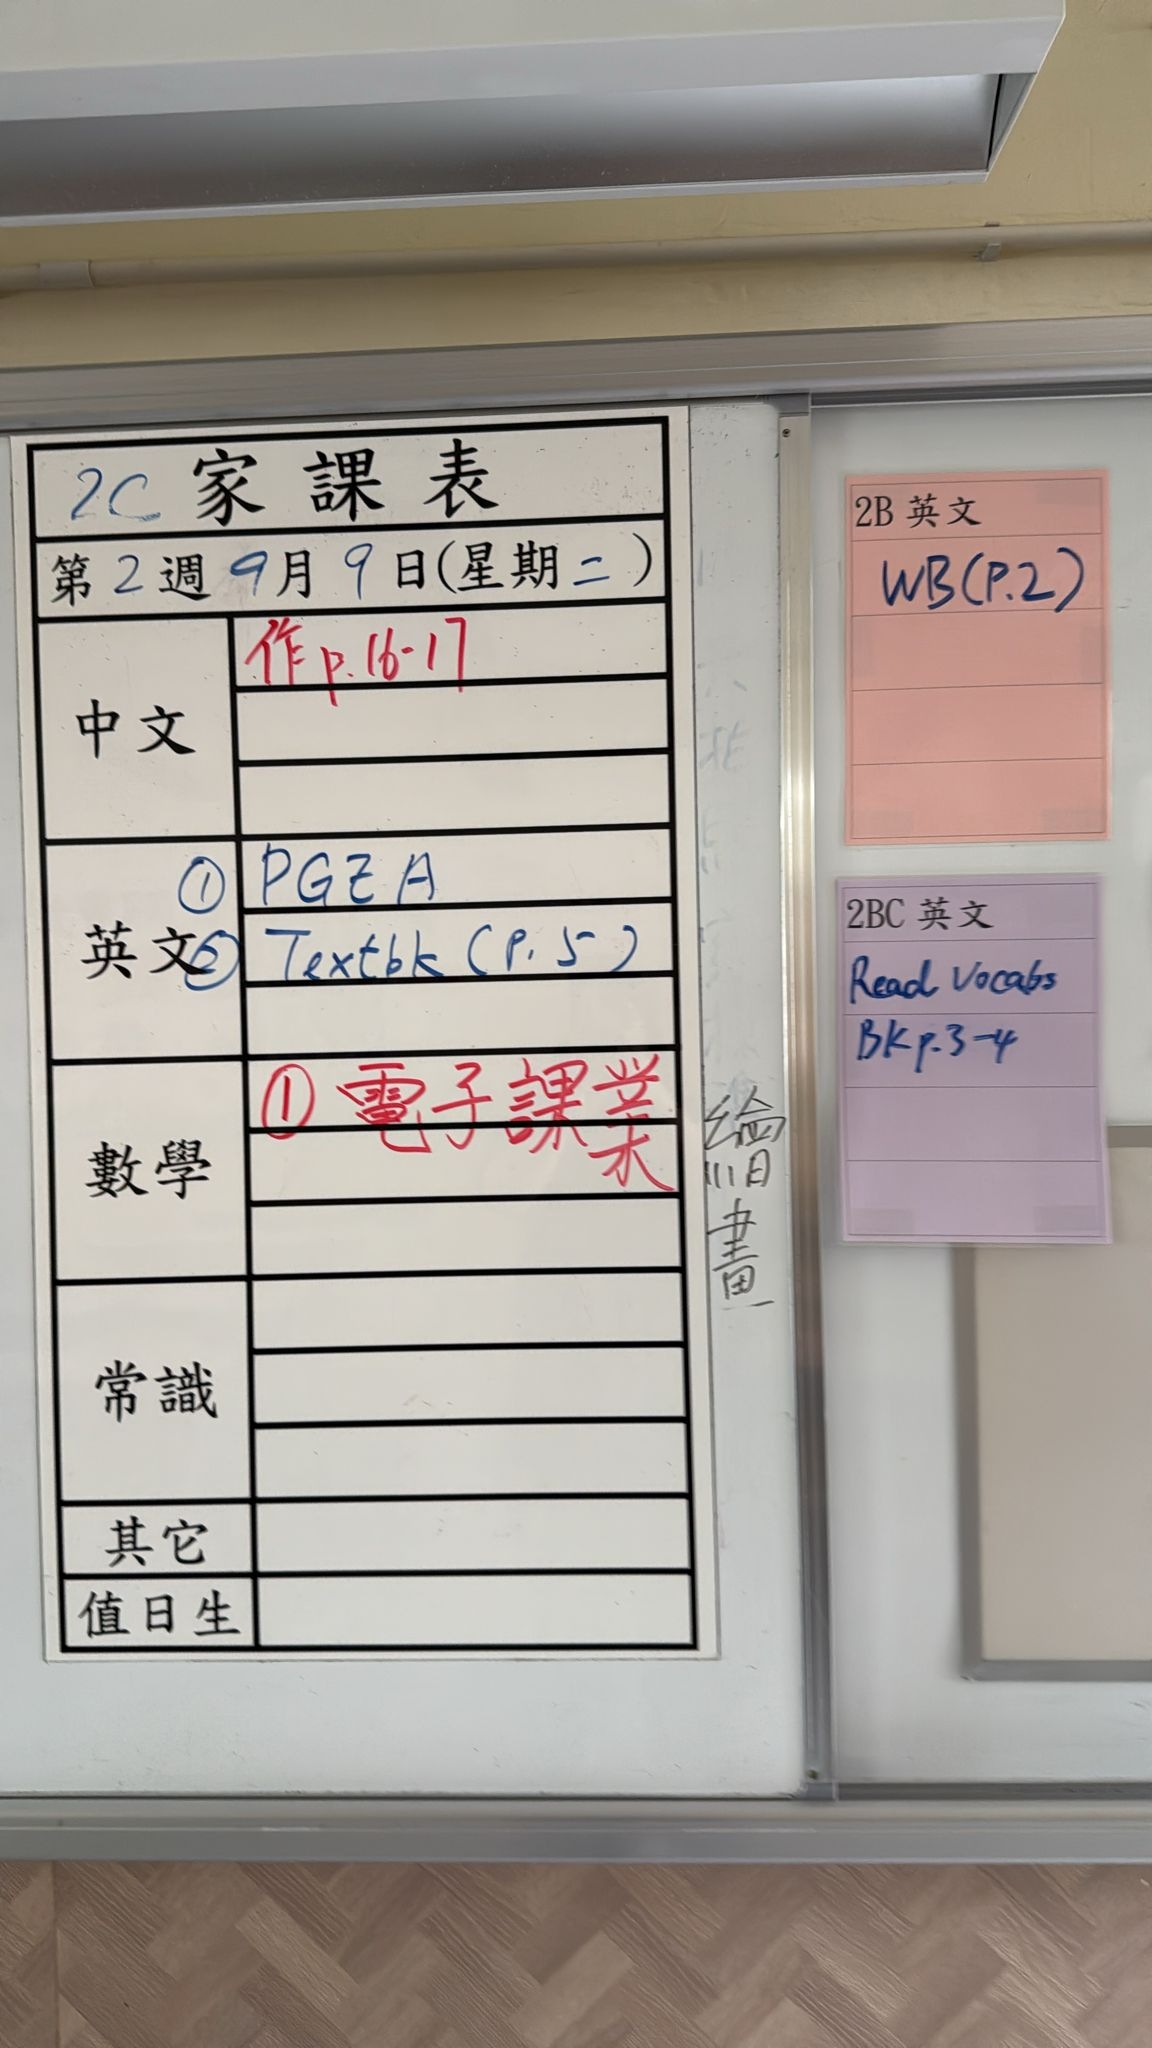 2C 家課表
第 2 週 9 月 9 日(星期二)
中文
作 p.16-17
英文
① PGE A
② Textbk (P.5)
數學
① 電子課業
常識
其它
值日生
繪畫
2B 英文
WB(P.2)
2BC 英文
Read Vocabs
BK p.3-4